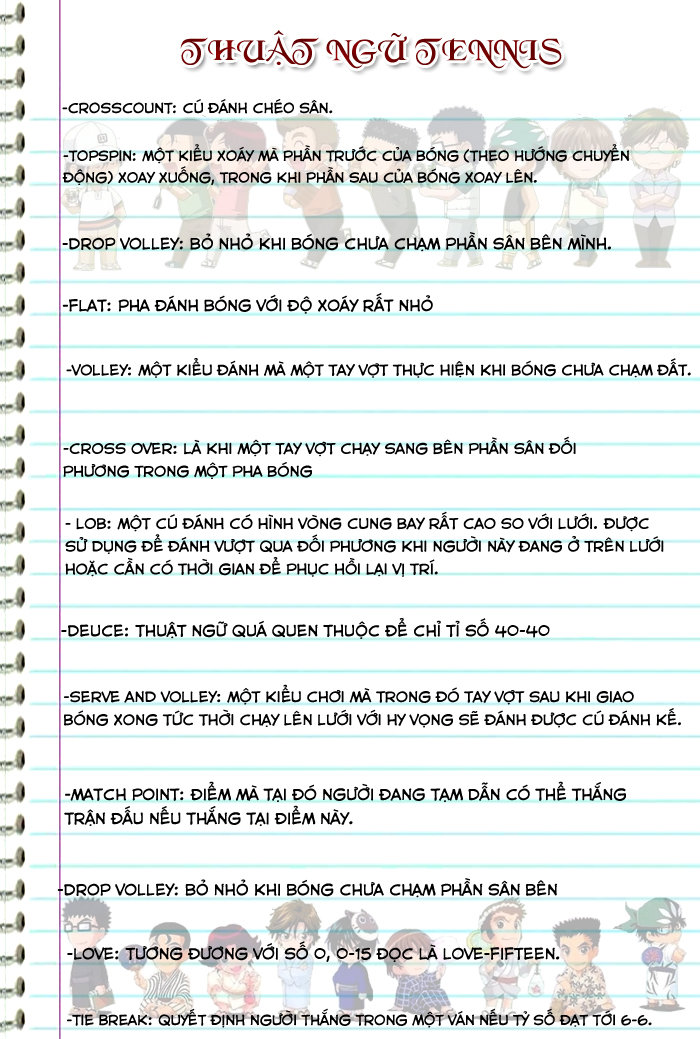 THUẬT NGỮ TENNIS
-CROSSCOUNT: CÚ ĐÁNH CHÉO SÂN.
-TOPSPIN: MỘT KIỂU XOÁY MÀ PHẦN TRƯỚC CỦA BÓNG (THEO HƯỚNG CHUYỂN
ĐỘNG) XOAY XUỐNG, TRONG KHI PHẦN SAU CỦA BÓNG XOAY LÊN.
-DROP VOLLEY: BỎ NHỎ KHI BÓNG CHƯA CHẠM PHẦN SÂN BÊN MÌNH.
-FLAT: PHA ĐÁNH BÓNG VỚI ĐỘ XOÁY RẤT NHỎ
-VOLLEY: MỘT KIỂU ĐÁNH MÀ MỘT TAY VỢT THỰC HIỆN KHI BÓNG CHƯA CHẠM ĐẤT.
-CROSS OVER: LÀ KHI MỘT TAY VỢT CHẠY SANG BÊN PHẦN SÂN ĐỐI
PHƯƠNG TRONG MỘT PHA BÓNG
- LOB: MỘT CÚ ĐÁNH CÓ HÌNH VÒNG CUNG BAY RẤT CAO SO VỚI LƯỚI. ĐƯỢC
SỬ DỤNG ĐỂ ĐÁNH VƯỢT QUA ĐỐI PHƯƠNG KHI NGƯỜI NÀY ĐANG Ở TRÊN LƯỚI
HOẶC CẦN CÓ THỜI GIAN ĐỂ PHỤC HỒI LẠI VỊ TRÍ.
-DEUCE: THUẬT NGỮ QUÁ QUEN THUỘC ĐỂ CHỈ TỈ SỐ 40-40
-SERVE AND VOLLEY: MỘT KIỂU CHƠI MÀ TRONG ĐÓ TAY VỢT SAU KHI GIAO
BÓNG XONG TỨC THỜI CHẠY LÊN LƯỚI VỚI HY VỌNG SẼ ĐÁNH ĐƯỢC CÚ ĐÁNH KẾ.
-MATCH POINT: ĐIỂM MÀ TẠI ĐÓ NGƯỜI ĐANG TẠM DẪN CÓ THỂ THẮNG
TRẬN ĐẤU NẾU THẮNG TẠI ĐIỂM NÀY.
-DROP VOLLEY: BỎ NHỎ KHI BÓNG CHƯA CHẠM PHẦN SÂN BÊN
-LOVE: TƯƠNG ĐƯƠNG VỚI SỐ 0, 0-15 ĐỌC LÀ LOVE-FIFTEEN.
-TIE BREAK: QUYẾT ĐỊNH NGƯỜI THẮNG TRONG MỘT VÁN NẾU TỶ SỐ ĐẠT TỚI 6-6.